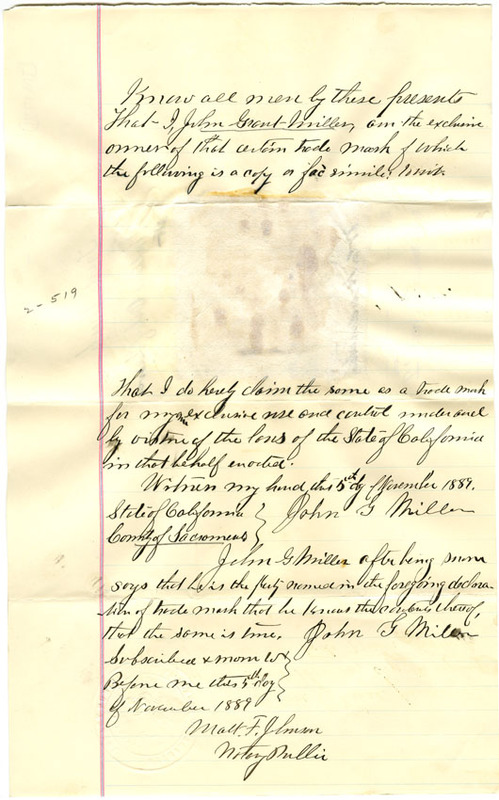 Know all men by these presents
That I, John Grant Miller, am the exclusive
owner of that certain trade mark of which
the following is a copy or fac simile: to wit.
2-519
That I do herely claim the same as a trade mark
for my exclusive use and control under and
by virtue of the laws of the State of California
in that behalf enacted.
Witness my hand this 5th dy November 1889.
State of California } John G Miller
County of Sacramento }
John G Miller after being sworn
says that he is the party named in the foregoing declara-
tion of trade mark that he knows the contents thereof,
that the same is true. John G Miller
Subscribed & sworn to }
Before me this 5th day }
of November 1889
Matt. F. Johnson
Notary Public